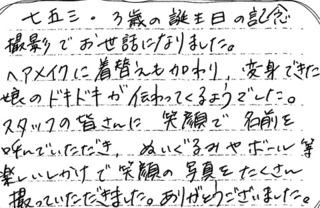 七五三・3歳の誕生日の記念
撮影でお世話になりました。
ヘアメイクに着替えも加わり、変身できた
娘のドキドキが伝わってくるようでした。
スタッフの皆さんに 笑顔で 名前を
呼んでいただき、ぬいぐるみやボール等
楽しいしかけで笑顔の写真をたくさん
撮っていただきました。ありがとうございました。